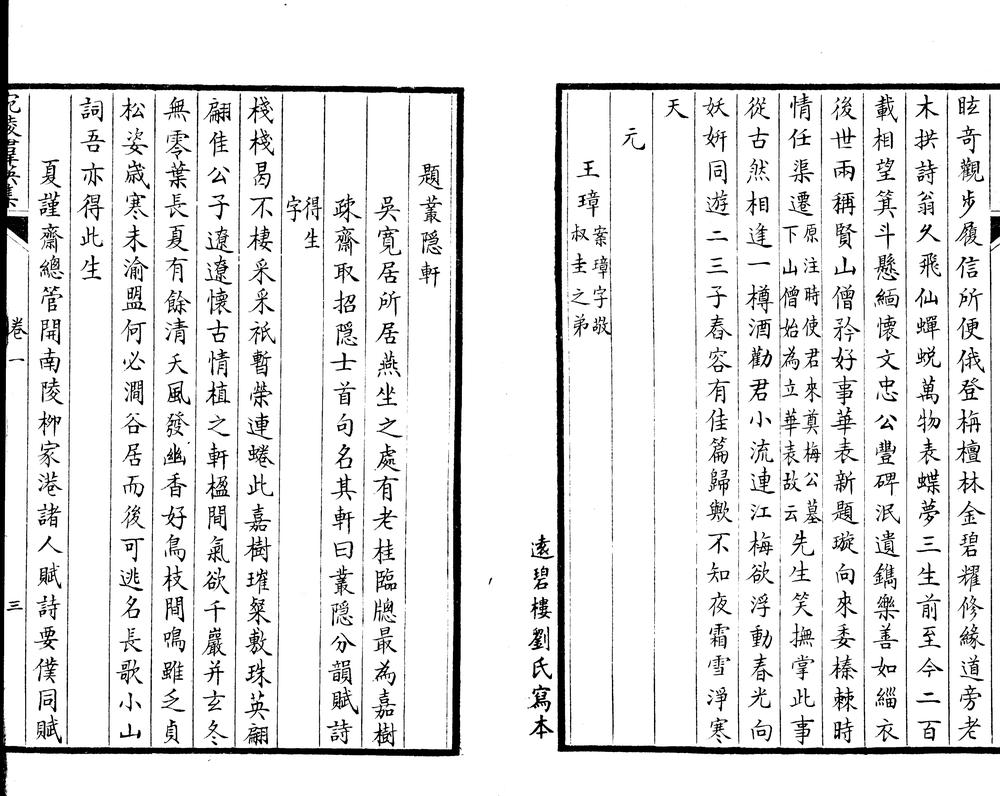 眩奇觀步履信所便俄登栴檀林金碧耀修緣道旁老
木拱詩翁久飛仙蟬蛻萬物表蝶夢三生前至今二百
載相望箕斗懸緬懷文忠公豐碑泯遺鐫樂善如緇衣
後世兩稱賢山僧矜好事華表新題璇向來委榛棘時
情任渠遷原注時使君來奠梅公墓下山僧始為立華表故云先生笑撫掌此事
從古然相逢一樽酒勸君小流連江梅欲浮動春光向
妖姸同遊二三子春容有佳篇歸歟不知夜霜雪淨寒
天
元
王璋案璋字敬叔圭之弟
遠碧樓劉氏寫本
題叢隱軒
吳寬居所居燕坐之處有老桂臨牕最為嘉樹
疎齋取招隱士首句名其軒曰叢隱分韻賦詩
得生字
棧棧曷不棲采采祇暫榮連蜷此嘉樹璀粲敷珠英翩
翩佳公子遼遼懷古情植之軒楹間氣欲千巖并玄冬
無零葉長夏有餘清天風發幽香好鳥枝間鳴雖乏貞
松姿歲寒未渝盟何必澗谷居而後可逃名長歌小山
詞吾亦得此生
夏謹齋總管開南陵柳家港諸人賦詩要僕同賦
宛陵羣英集
卷一
三